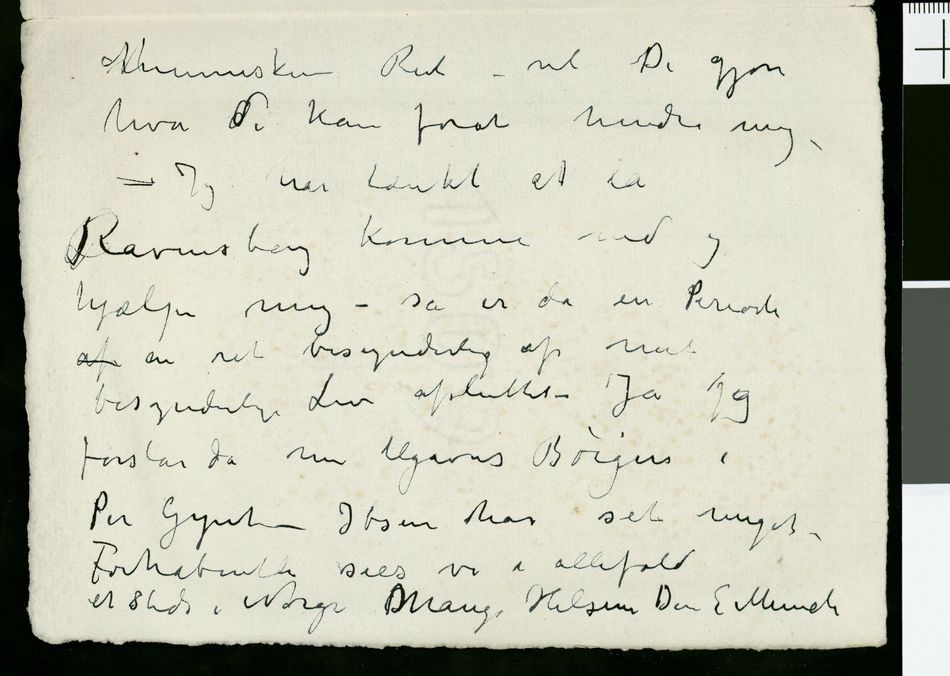 Menneskene Red – vil De gjøre
hva De kan forat hindre mig –
– Jeg har tænkt at la
Ravensberg komme ned og
hjælpe mig – så er da en Periode
af en ret besynderlig af mit
besynderlige Liv afsluttet – Ja jeg
forstår da nu Bøigen i
Per Gynt – Ibsen har set meget –
Forhåbentli sees vi i allefald
et Steds i Norge Mange Hilsen Deres E Munch